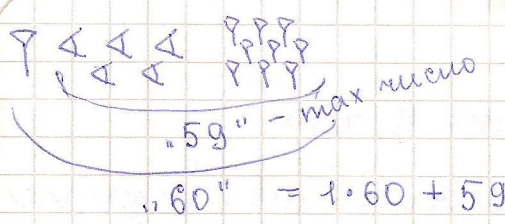 „59“ - max число
„60“ = 1•60 + 59